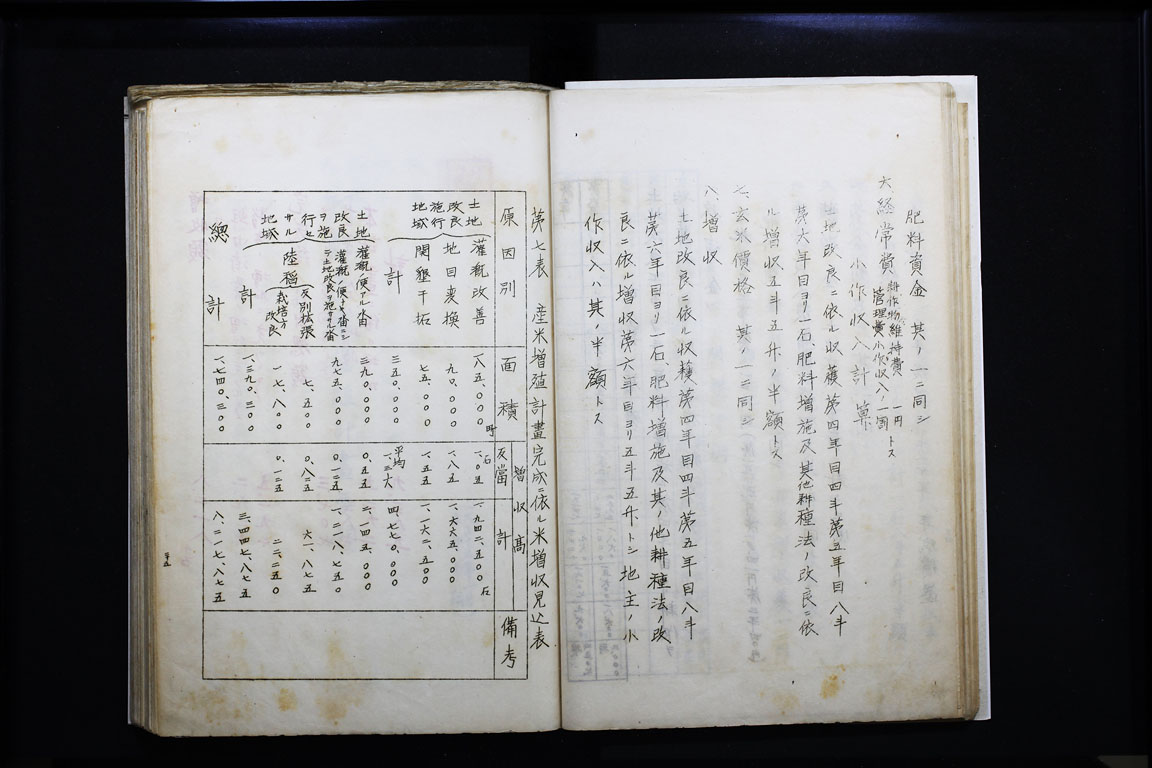 肥料資金 其ノ一ニ同シ
六、経常費 耕作物維持費 一円
管理費小作収入ノ一割トス
小作収入計算
土地改良ニ依ル収穫第四年目四斗第五年目八斗
第六年目ヨリ一石、肥料増施及其他耕種法ノ改良ニ依
ル増収五斗五升ノ半額トス
七、玄米價格 其ノ一ニ同シ
八、増収
土地改良ニ依ル収穫第四年目四斗第五年目八斗
第六年目ヨリ一石肥料増施及其ノ他耕種法ノ改
良ニ依ル増収第六年目ヨリ五斗五升トシ地主ノ小
作収入ハ其ノ半額トス
第七表 産米増殖計畫完成ニ依ル米増収見込表
原因別 面積 増収高 反當 計 備考
土地改良施行地域
灌漑改善 一八五、〇〇〇町 一、〇五石 一、九四二、五〇〇石
地目変換 九〇、〇〇〇 一、八五 一、六六五、〇〇〇
開墾干拓 七五、〇〇〇 一、五五 一、一六二、五〇〇
計 三五〇、〇〇〇 平均一、三六 四、七七〇、〇〇〇
土地改良ヲ施行セサル地域
灌漑ノ便アル畓 三九〇、〇〇〇 〇、五五 二、一四五、〇〇〇
灌漑ノ便ナキ畓ニシテ土地改良ヲ施サザル畓 九七五、〇〇〇 〇、一二五 一、二一八、七五〇
陸稲
反別拡張 七、五〇〇 〇、八二五 六一、八七五
栽培方改良 一七、八〇〇 〇、一二五 二二、二五〇
計 一、三九〇、三〇〇 三、四四七、八七五
總計 一、七四〇、三〇〇 八、二一七、八七五